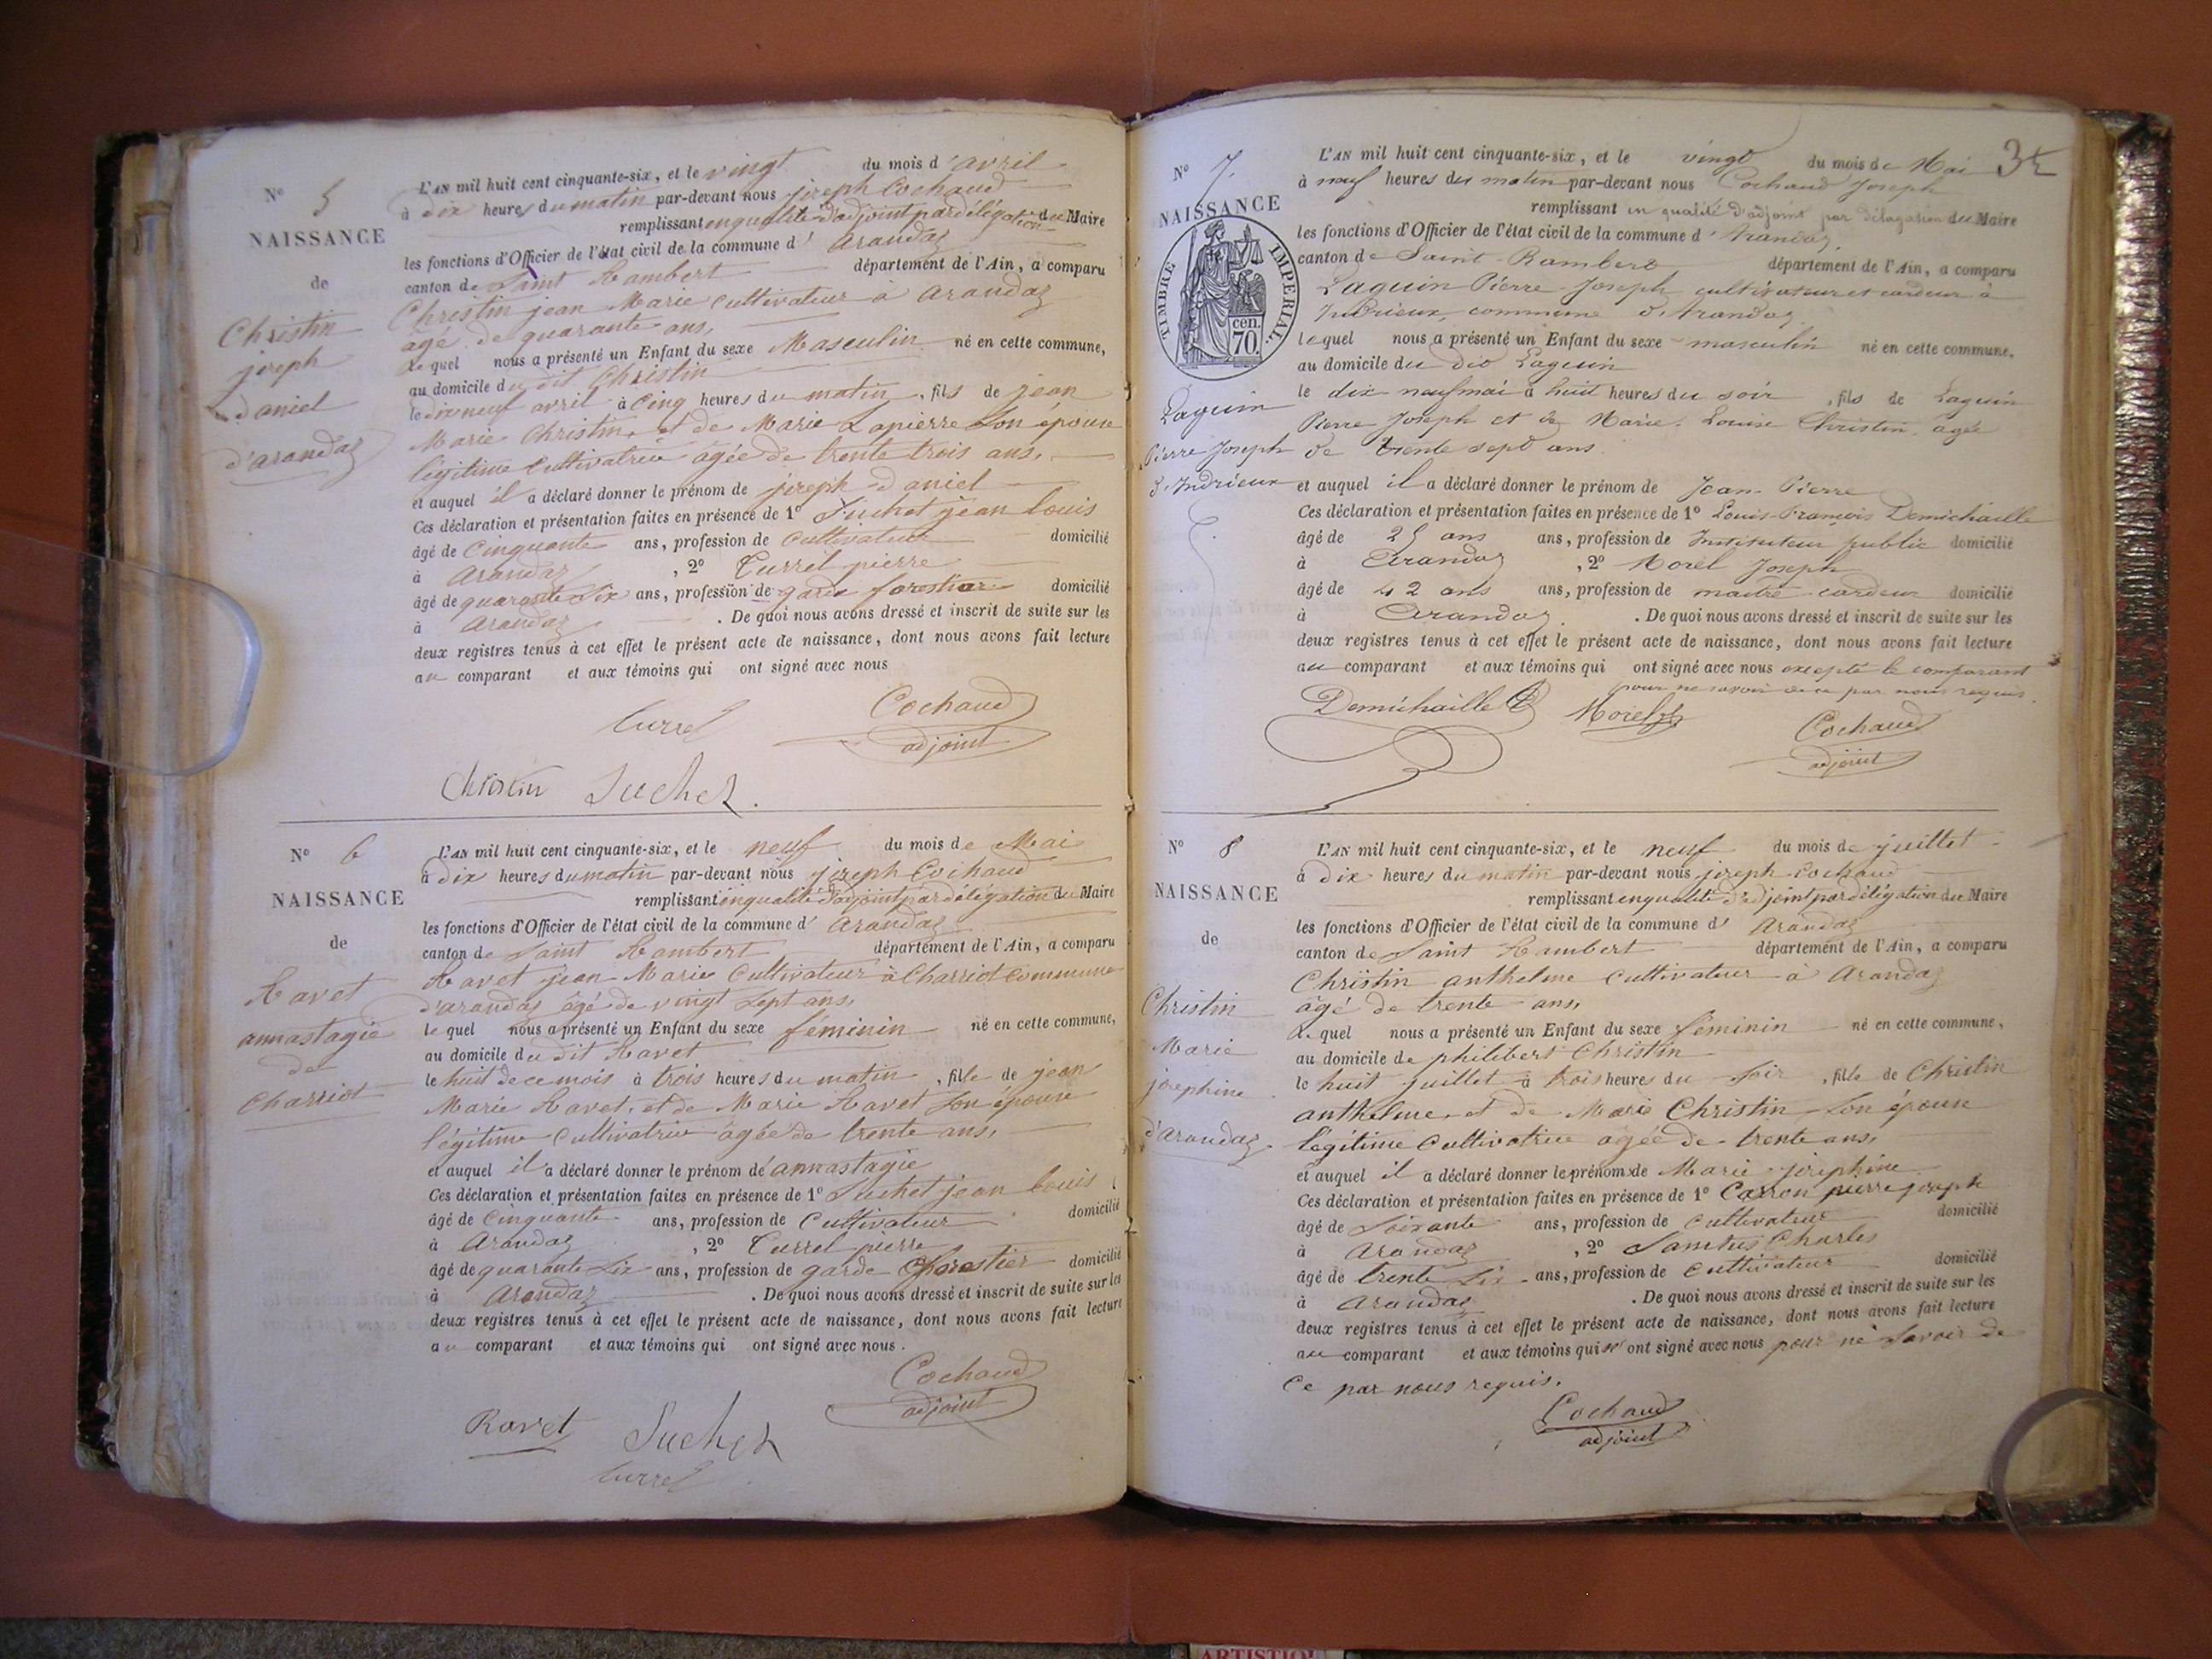 N° 5
NAISSANCE
de
Christin
joseph
daniel
d'arandaz
L'AN mil huit cent cinquante-six, et le vingt du mois d'avril
à dix heures du matin par-devant nous joseph Cochaud
remplissant en qualité d'adjoint par délégation du Maire
les fonctions d'Officier de l'état civil de la commune d'arandaz
canton de Saint Rambert département de l'Ain, a comparu
Christin jean Marie cultivateur à arandaz
âgé de quarante ans,
Lequel nous a présenté un Enfant du sexe Masculin né en cette commune,
au domicile du dit Christin
le dix neuf avril à cinq heures du matin, fils de jean
Marie Christin, et de Marie Lapierre Son épouse
légitime Cultivatrice âgée de trente trois ans,
et auquel il a déclaré donner le prénom de joseph daniel
Ces déclaration et présentation faites en présence de 1° Suchet jean louis
âgé de Cinquante ans, profession de Cultivateur domicilié
à Arandaz, 2° Turrel pierre
âgé de quarante Six ans, profession de garde forestier domicilié
à Arandaz. De quoi nous avons dressé et inscrit de suite sur les
deux registres tenus à cet effet le présent acte de naissance, dont nous avons fait lecture
au comparant et aux témoins qui ont signé avec nous
Turrel Cochaud
adjoint
Christin Suchet.
N° 6
NAISSANCE
de
Ravet
annastagie
de
Charriot
L'AN mil huit cent cinquante-six, et le neuf du mois de Mai
à dix heures du matin par-devant nous joseph Cochaud
remplissant en qualité d'adjoint par délégation du Maire
les fonctions d'Officier de l'état civil de la commune d'arandaz
canton de Saint Rambert département de l'Ain, a comparu
Ravet jean Marie Cultivateur à Charriot Commune
d'arandaz âgé de vingt Sept ans,
le quel nous a présenté un Enfant du sexe féminin né en cette commune,
au domicile du dit Ravet
le huit de ce mois à trois heures du matin, fille de jean
Marie Ravet, et de Marie Ravet Son épouse
légitime Cultivatrice âgée de trente ans,
et auquel il a déclaré donner le prénom de annastagie
Ces déclaration et présentation faites en présence de 1° Suchet jean louis
âgé de Cinquante ans, profession de Cultivateur domicilié
à Arandaz, 2° Turrel pierre
âgé de quarante Six ans, profession de garde forestier domicilié
à Arandaz. De quoi nous avons dressé et inscrit de suite sur les
deux registres tenus à cet effet le présent acte de naissance, dont nous avons fait lecture
au comparant et aux témoins qui ont signé avec nous.
Cochaud
adjoint
Ravet Suchet
Turrel
35
N° 7.
NAISSANCE
TIMBRE IMPERIAL.
70 cen.
Laguin
Pierre Joseph
d'Indrieux
L'AN mil huit cent cinquante-six, et le vingt du mois de Mai
à neuf heures du matin par-devant nous Cochaud Joseph
remplissant en qualité d'adjoint par délégation du Maire
les fonctions d'Officier de l'état civil de la commune d'Arandaz
canton de Saint-Rambert département de l'Ain, a comparu
Laguin Pierre Joseph cultivateur et cardeur à
Indrieux, commune d'Arandaz
lequel nous a présenté un Enfant du sexe masculin né en cette commune,
au domicile du dit Laguin
le dix-neuf mai à huit heures du soir, fils de Laguin
Pierre Joseph et de Marie Louise Christin, agée
de trente sept ans
et auquel il a déclaré donner le prénom de Jean-Pierre
Ces déclaration et présentation faites en présence de 1° Louis-François Demichaille
âgé de 25 ans ans, profession de Instituteur public domicilié
à Arandaz, 2° Morel Joseph
âgé de 42 ans ans, profession de maître-cardeur domicilié
à Arandaz. De quoi nous avons dressé et inscrit de suite sur les
deux registres tenus à cet effet le présent acte de naissance, dont nous avons fait lecture
au comparant et aux témoins qui ont signé avec nous excepté le comparant
pour ne savoir de ce par nous requis.
Demichaille Morel Cochaud
adjoint
N° 8
NAISSANCE
de
Christin
Marie
josephine
d'arandaz
L'AN mil huit cent cinquante-six, et le neuf du mois de juillet
à dix heures du matin par-devant nous joseph Cochaud
remplissant en qualité d'adjoint par délégation du Maire
les fonctions d'Officier de l'état civil de la commune d'Arandaz
canton de Saint Rambert département de l'Ain, a comparu
Christin anthelme Cultivateur à Arandaz
âgé de trente ans,
Lequel nous a présenté un Enfant du sexe féminin né en cette commune,
au domicile de philibert Christin
le huit juillet à trois heures du Soir, fille de Christin
anthelme et de Marie Christin Son épouse
légitime Cultivatrice âgée de trente ans,
et auquel il a déclaré donner le prénom de Marie josephine
Ces déclaration et présentation faites en présence de 1° Carron pierre joseph
âgé de Soixante ans, profession de cultivateur domicilié
à Arandaz, 2° Charles
âgé de trente Six ans, profession de Cultivateur domicilié
à Arandaz. De quoi nous avons dressé et inscrit de suite sur les
deux registres tenus à cet effet le présent acte de naissance, dont nous avons fait lecture
au comparant et aux témoins qui n'ont signé avec nous pour ne Savoir de
Ce par nous requis.
Cochaud
adjoint